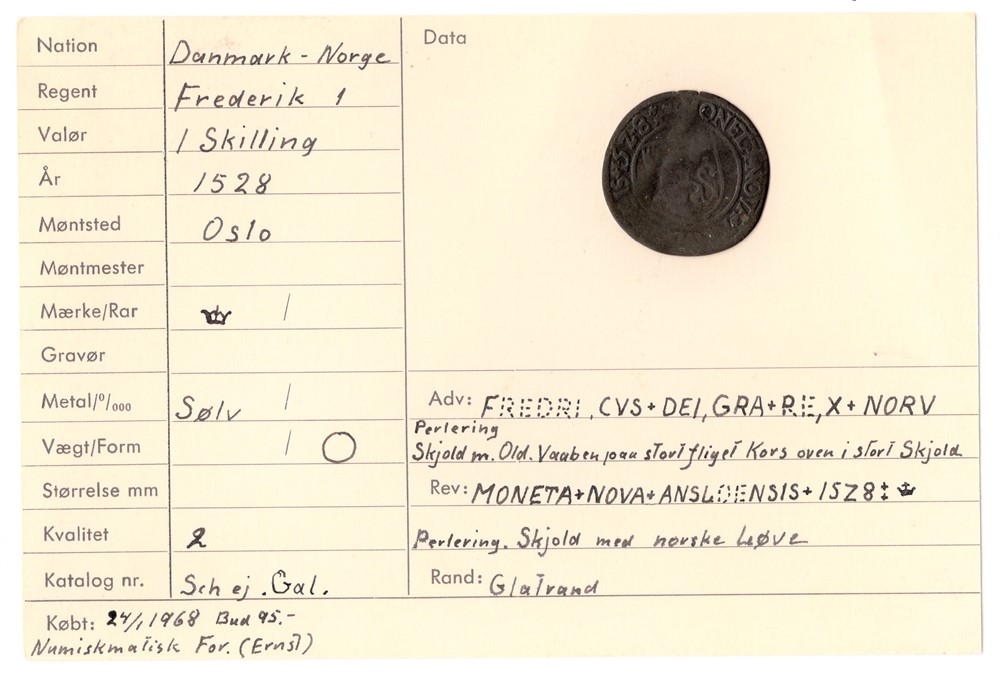 Nation Danmark - Norge
Regent Frederik 1
Valør 1 Skilling
År 1528
Møntsted Oslo
Møntmester
Mærke/Rar /
Gravør
Metal/⁰/₀₀₀ Sølv /
Vægt/Form / O
Størrelse mm
Kvalitet 2
Katalog nr. Schej. Gal.
Købt: 24/1 1968 Bud 95.-
Numiskmatisk For. (Ernst)
Data
Adv: FREDRI, CVS+DEI, GRA+RE,X+NORV
Perlering
Skjold m. Old. Vaaben paa stort fliget Kors oven i stort Skjold
Rev: MONETA+NOVA+ANSLOENSIS+1528
Perlering. Skjold med norske Løve
Rand: Glatrand